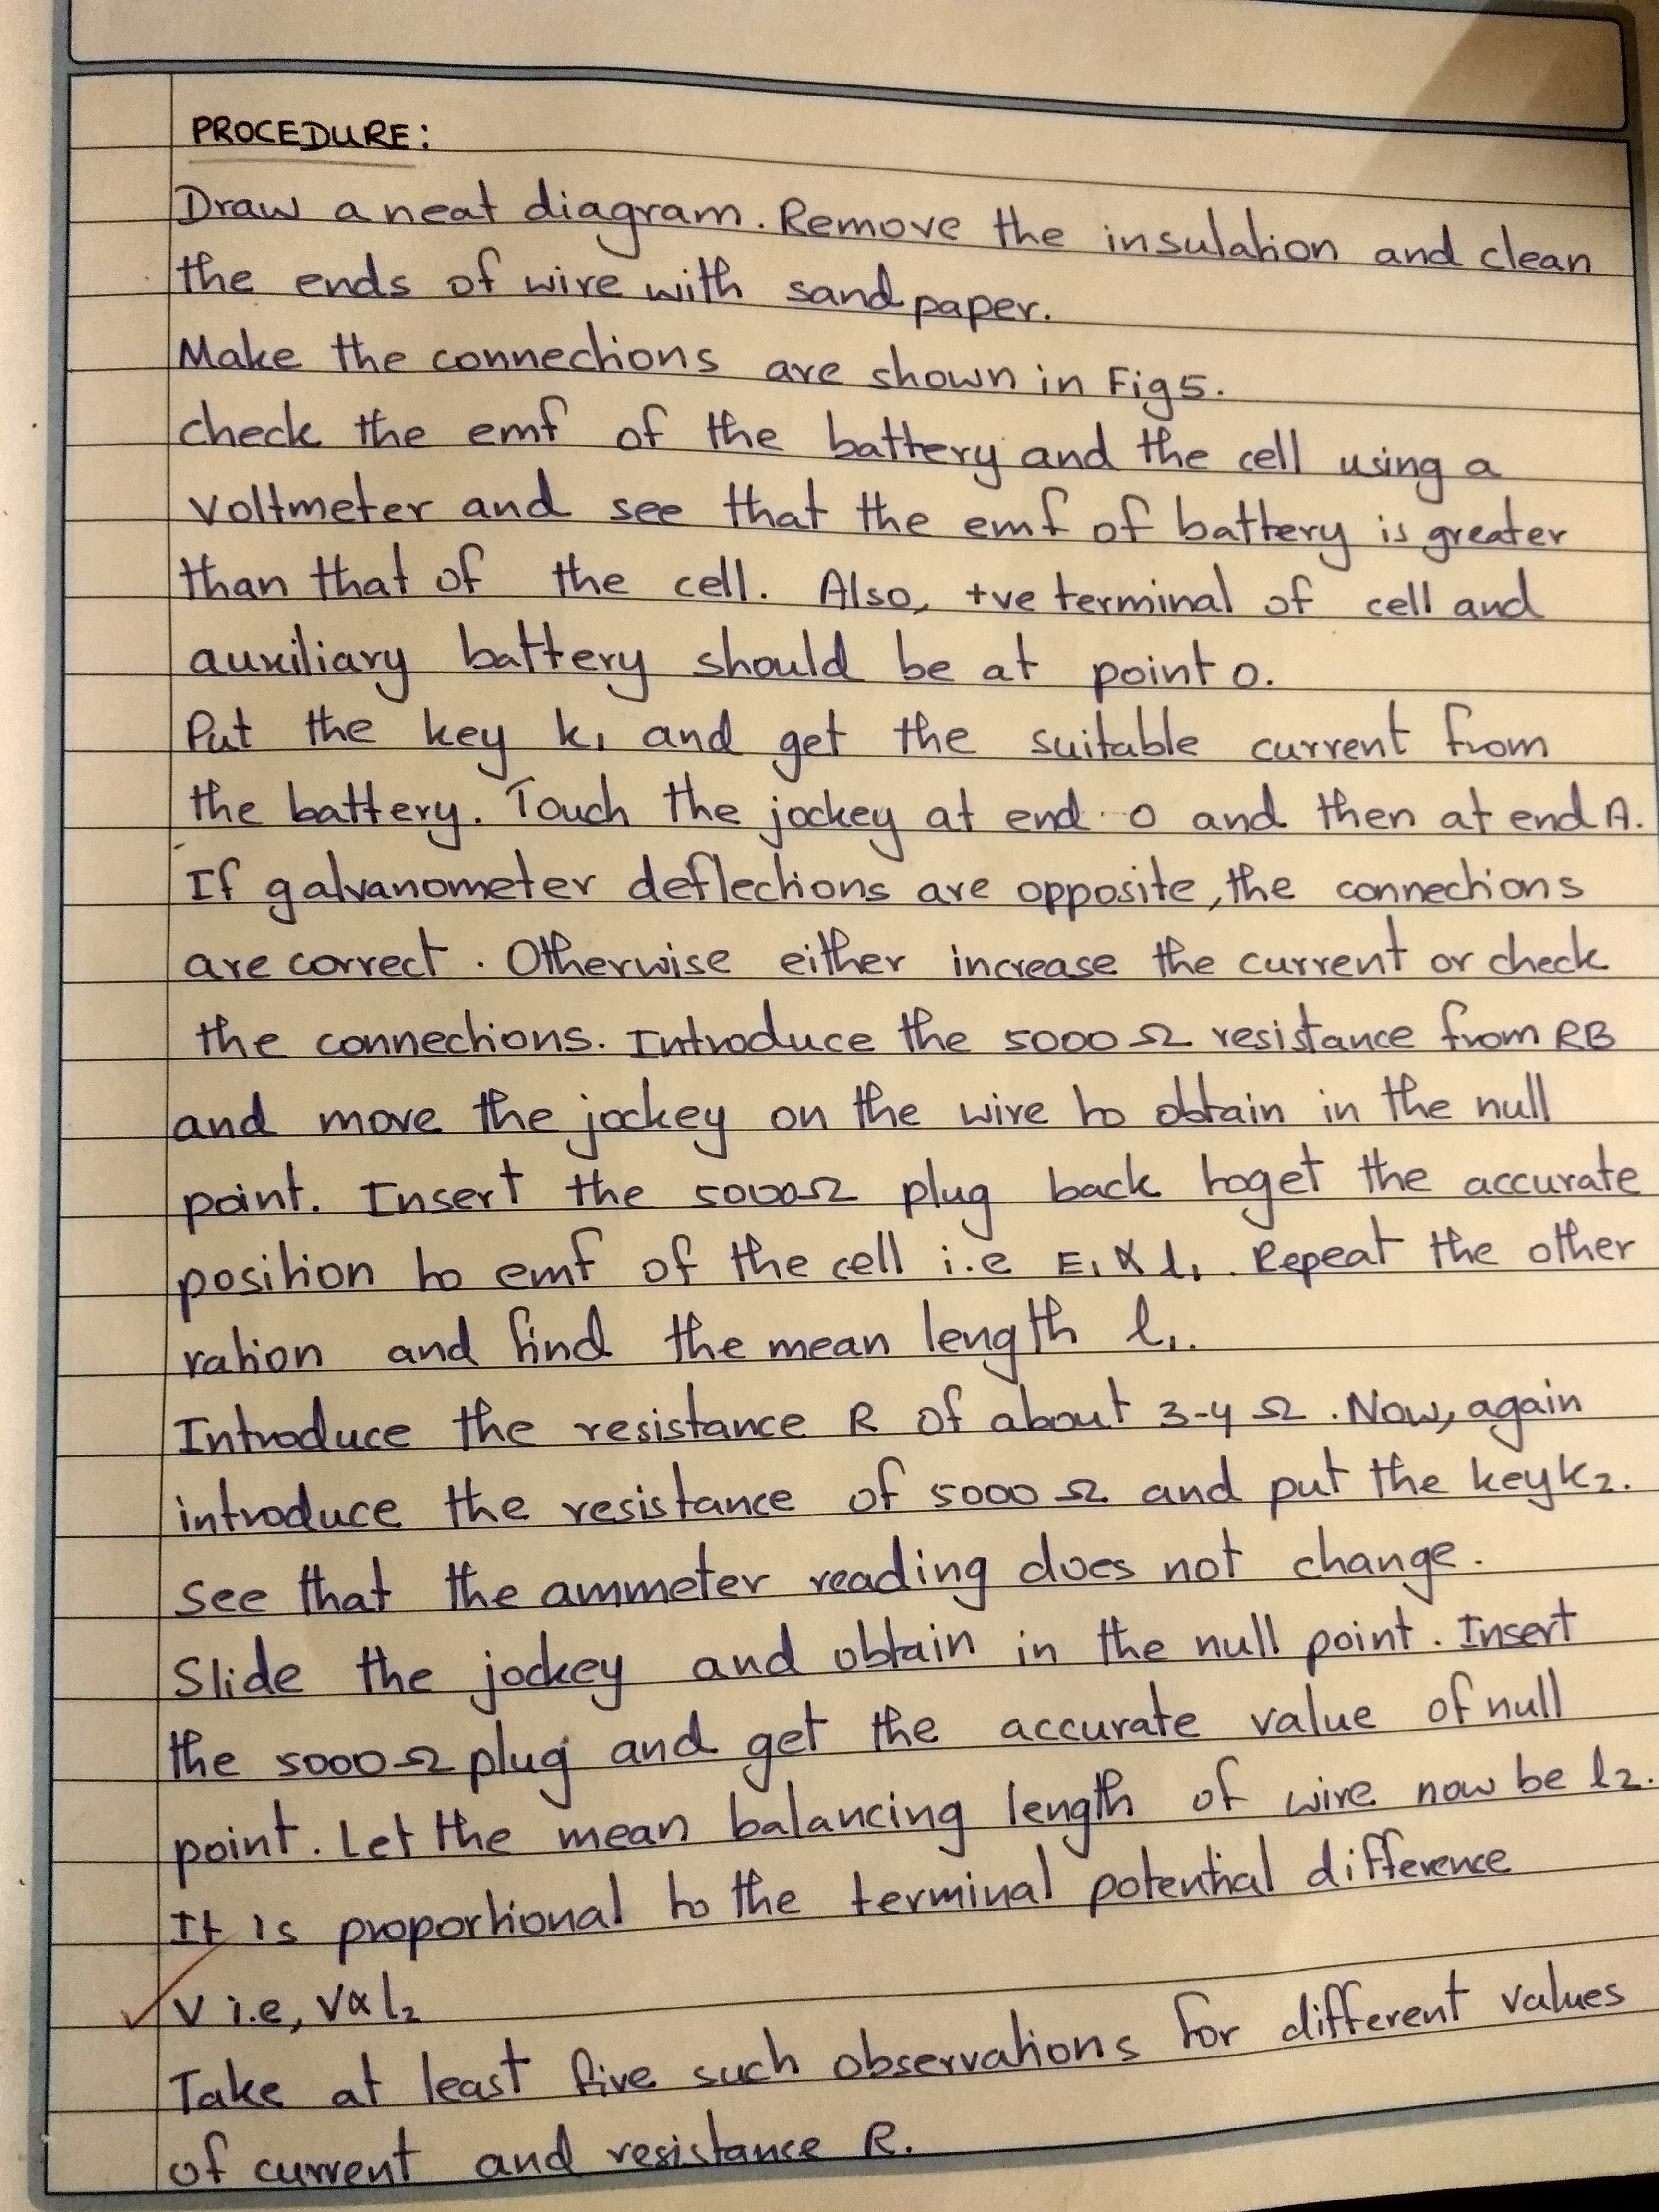 PROCEDURE:
Draw a neat diagram. Remove the insulation and clean
the ends of wire with sand paper.
Make the connections are shown in Fig 5.
check the emf of the battery and the cell using a
voltmeter and see that the emf of battery is greater
than that of the cell. Also, +ve terminal of cell and
auxiliary battery should be at point o.
Put the key k₁ and get the suitable current from
the battery. Touch the jockey at end o and then at end A.
If galvanometer deflections are opposite, the connections
are correct. Otherwise either increase the current or check
the connections. Introduce the 5000 Ω resistance from RB
and move the jockey on the wire to obtain in the null
point. Insert the 5000Ω plug back to get the accurate
position to emf of the cell i.e E₁ ∝ l₁. Repeat the other
ration and find the mean length l₁.
Introduce the resistance R of about 3-4 Ω. Now, again
introduce the resistance of 5000 Ω and put the key k₂.
See that the ammeter reading does not change.
Slide the jockey and obtain in the null point. Insert
the 5000 Ω plug and get the accurate value of null
point. Let the mean balancing length of wire now be l₂.
It is proportional to the terminal potential difference
V i.e, V∝l₂
Take at least five such observations for different values
of current and resistance R.